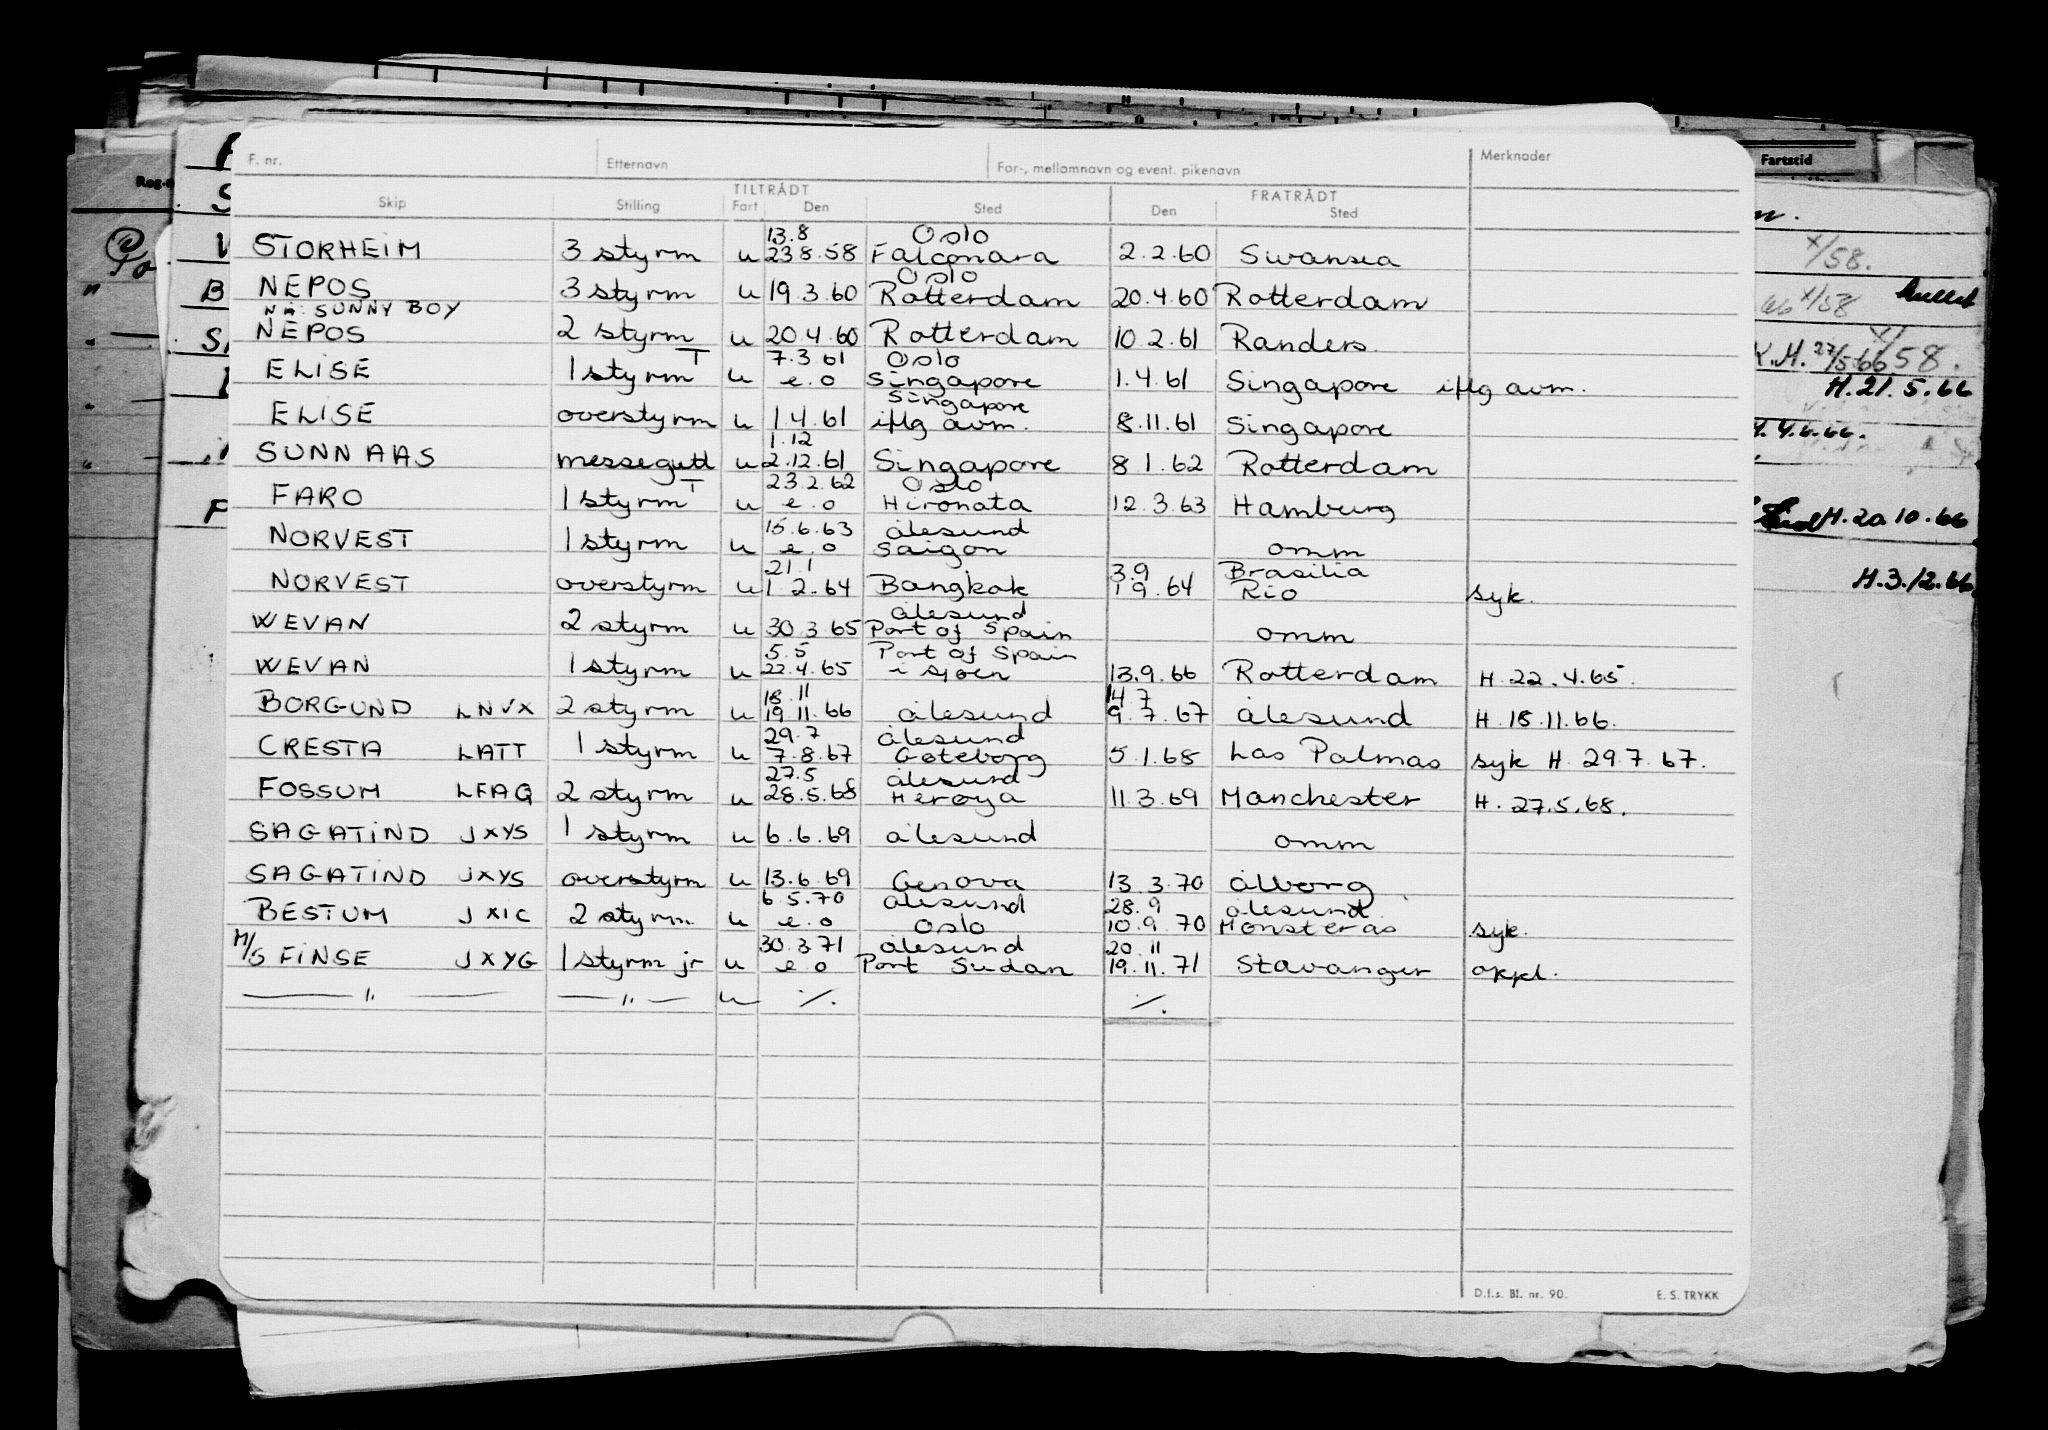 F. nr. Etternavn For-, mellomnavn og event. pikenavn Merknader
TILTRÅDT FRATRÅDT
Skip Stilling Fart Den Sted Den Sted
13.8 Oslo
STORHEIM 3 styrm u 23 8.58 Falconara 2.2.60 Swansea
Oslo
NEPOS 3 styrm u 19.3.60 Rotterdam 20.4.60 Rotterdam
NÅ: SUNNY BOY
NEPOS 2 styrm u 20.4.60 Rotterdam 10.2.61 Randers
T 7.3.61 Oslo
ELISE 1 styrm u e.o Singapore 1.4.61 Singapore iflg avm.
Singapore
ELISE overstyrm u 1.4.61 iflg avm. 8.11.61 Singapore
1.12
SUNNAAS messegutt u 2.12.61 Singapore 8.1.62 Rotterdam
T 23.2.62 Oslo
FARO 1 styrm u e.o Hironata 12.3.63 Hamburg
15.6.63 ålesund
NORVEST 1 styrm u e.o Saigon omm
21.1 3.9 Brasilia
NORVEST overstyrm u 1.2.64 Bangkok 1 9.64 Rio syk.
ålesund
WEVAN 2 styrm u 30.3.65 Port of Spain omm
5.5 Port of Spain
WEVAN 1 styrm u 22.4.65 i sjøen 13.9.66 Rotterdam H. 22.4.65.
18.11 14 7
BORGUND LNVX 2 styrm u 19.11.66 ålesund 9.7.67 ålesund H. 18.11.66.
29.7 ålesund
CRESTA LATT 1 styrm u 7.8.67 Gøteborg 5.1.68 Las Palmas syk H. 29.7.67.
27.5 ålesund
FOSSUM LFAQ 2 styrm u 28.5.68 Herøya 11.3.69 Manchester H. 27.5.68.
SAGATIND JXYS 1 styrm u 6.6.69 ålesund omm
SAGATIND JXYS overstyrm u 13.6.69 Genova 13.3.70 ålborg
6.5.70 ålesund 28.9 ålesund
BESTUM JXIC 2 styrm. u e.o Oslo 10.9.70 Mønsterås syk.
30.3.71 ålesund 20 11
M/S FINSE JXYG 1 styrm jr u e o Port Sudan 19.11.71 Stavanger oppl.
— " — — " — u ./. ./.
D.f.s. Bl. nr. 90. E. S. TRYKK
Fartstid
x/58.
x/58
K.M. 27/5.66
58.
H.21.5.66
H.20.10.66
H.3.12.66